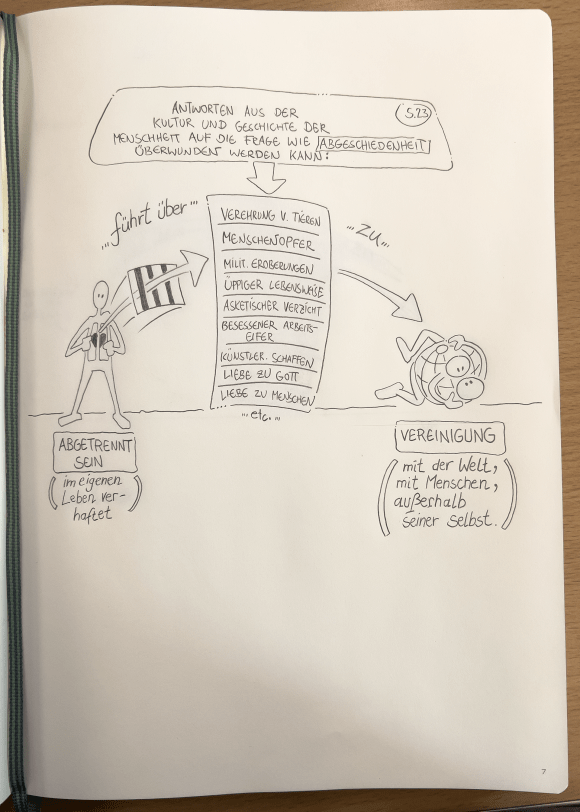 ANTWORTEN AUS DER
KULTUR UND GESCHICHTE DER
MENSCHHEIT AUF DIE FRAGE WIE ABGESCHIEDENHEIT
ÜBERWUNDEN WERDEN KANN:
S.23
...führt über...
VEREHRUNG V. TIEREN
MENSCHENOPFER
MILIT. EROBERUNGEN
ÜPPIGER LEBENSWEISE
ASKETISCHER VERZICHT
BESESSENER ARBEITS-
EIFER
KÜNSTLER. SCHAFFEN
LIEBE ZU GOTT
LIEBE ZU MENSCHEN
... etc. ...
...ZU...
ABGETRENNT
SEIN
(im eigenen
Leben ver-
haftet)
VEREINIGUNG
(mit der Welt,
mit Menschen,
außerhalb
seiner selbst.)
7